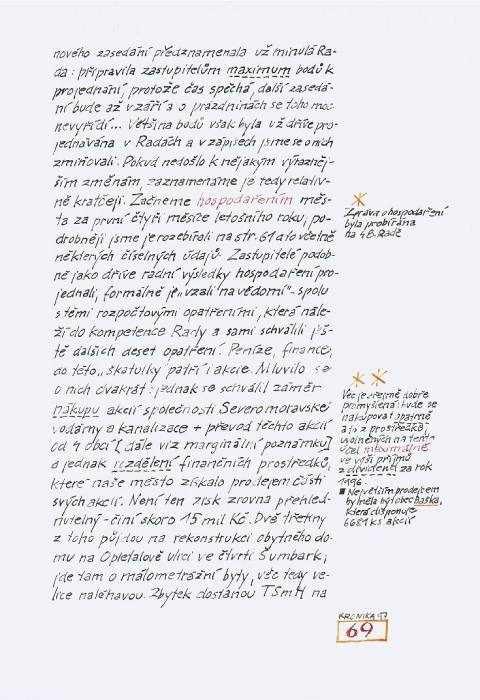 nového zasedání předznamenala už minulá Ra-
da: připravila zastupitelům maximum bodů k
projednání, protože čas spěchá, další zasedá-
ní bude až v září a o prázdninách se toho moc
nevyřídí... Většina bodů však byla už dříve pro-
jednávána v Radách a v zápisech jsme se o nich
zmiňovali. Pokud nedošlo k nějakým výrazněj-
ším změnám, zaznamenáme je tedy relativ-
ně kratčeji. Začneme hospodařením měs-
ta za první čtyři měsíce letošního roku, po-
drobněji jsme je rozebírali na str. 61 a to včetně
některých číselných údajů. Zastupitelé podob-
ně jako dříve radní výsledky hospodaření pro-
jednali, formálně je „vzali na vědomí“ - spolu
s těmi rozpočtovými opatřeními, která nále-
ží do kompetence Rady a sami schválili ješ-
tě dalších deset opatření. Peníze, finance,
do této „škatulky“ patří i akcie. Mluvilo se
o nich dvakrát: jednak se schválil záměr
nákupu akcií společnosti Severomoravské
vodárny a kanalizace + převod těchto akcií
od 4 obcí [dále viz marginální poznámku]
a jednak rozdělení finančních prostředků,
které naše město získalo prodejem části
svých akcií. Není ten zisk zrovna přehléd-
nutelný - činí skoro 15 mil Kč. Dvě třetiny
z toho půjdou na rekonstrukci obytného do-
mu na Opletalově ulici ve čtvrti Šumbark,
jde tam o málometrážní byty, věc tedy ve-
lice naléhavou. Zbytek dostanou TSmH na
Zpráva o hospodaření
byla probírána
na 48. Radě
Věc je zřejmě dobře
promyšlena: bude se
nakupovat opatrně
a to z prostředků,
uvolněných na tento
účel mimořádně
ve výši příjmů
z dividend za rok
1996.
Největším prodejcem
by měla být obec Baška,
která disponuje
6681 ks akcií
KRONIKA 97
69